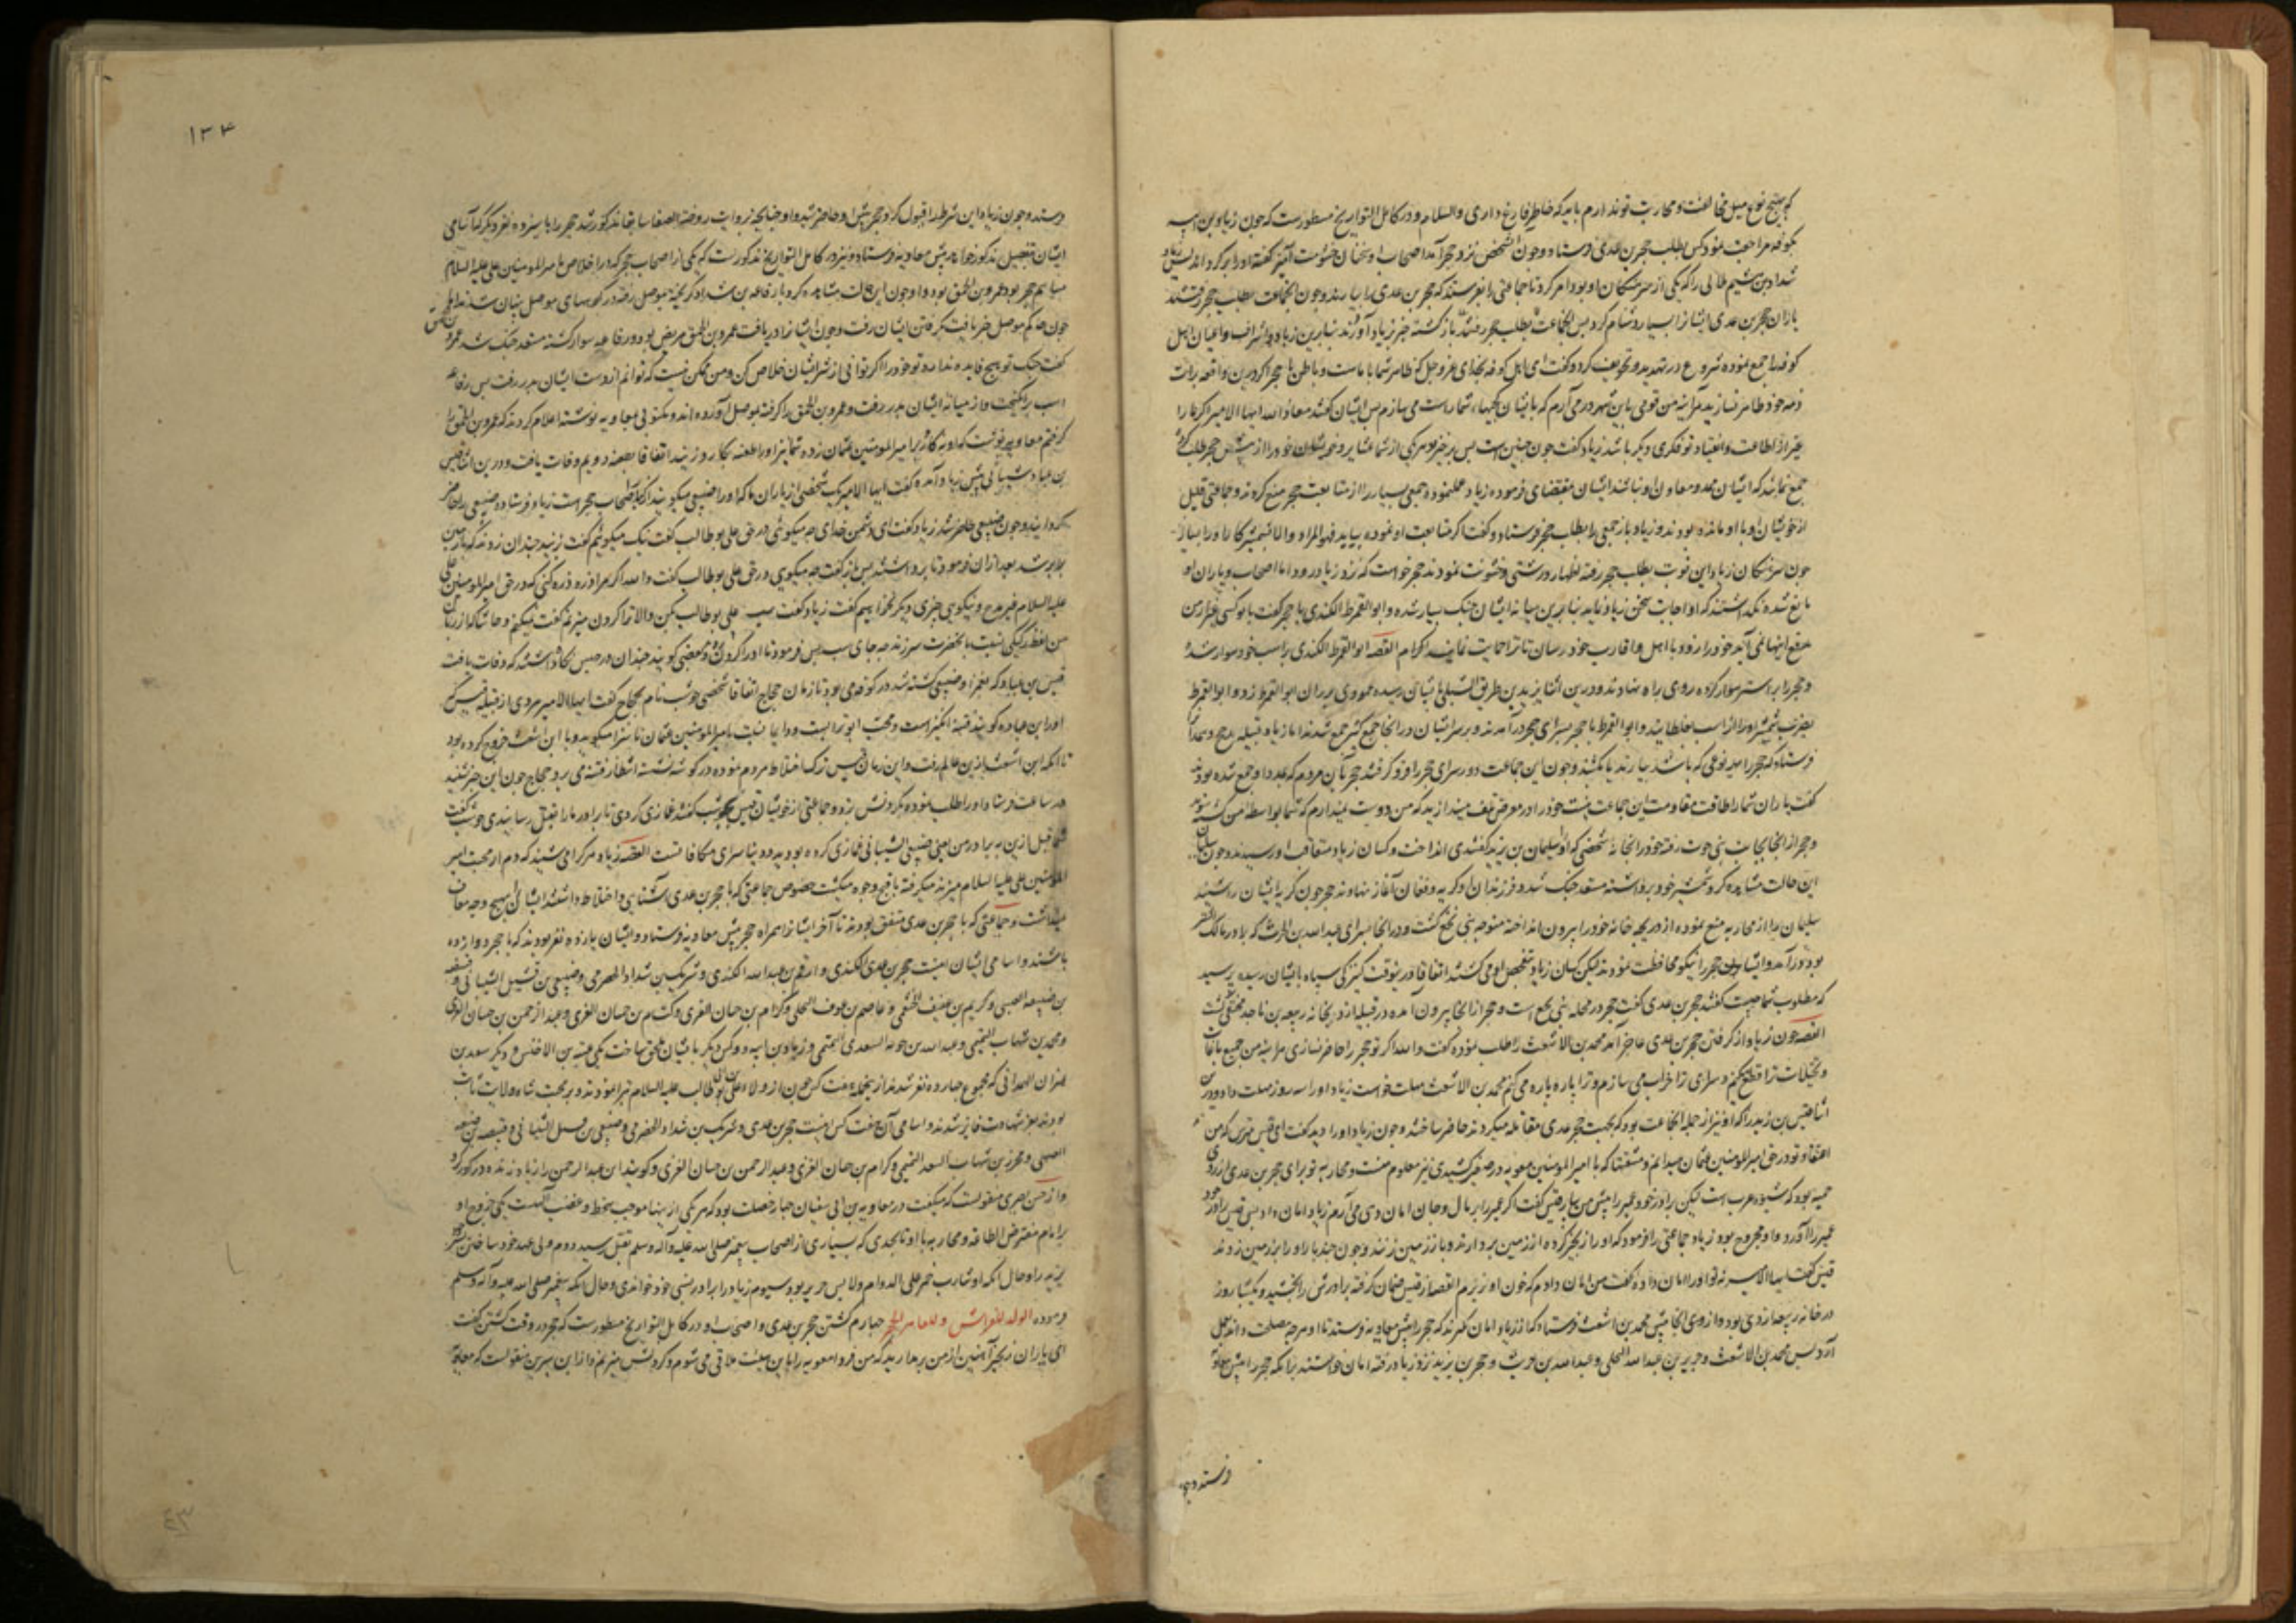 که هیچ نوع میل مخالفت و محاربت تو ندارم باید که خاطر فارغ داری والسلام و در کامل التواریخ مسطورست که چون زیاد بن ابیه
بکوفه مراجعت نمود کس بطلب حجر بن عدی فرستاد و چون آن شخص نزد حجر آمد اصحاب او سخنان خشونت آمیز گفته او را بر گردانیدند
شداد بن هیثم هلالی را که یکی از سرهنگان او بود امر کرد تا جماعتی را بفرستد که حجر بن عدی را بیارند و چون آن جماعت بطلب حجر رفتند
یاران حجر بن عدی ایشانرا بسیار دشنام کردند پس آن جماعت که بطلب حجر رفتند باز گشته خبر بزیاد آوردند بنابرین زیاد اشراف و اعیان اهل
کوفه را جمع نموده شروع در تهدید و تخویف کرد و گفت ای اهل کوفه بخدای عز و جل که ظاهر شما با ماست و باطن با حجر اگر درین واقعه برائت
ذمه خود ظاهر نسازید هر آینه من قومی باین شهر درمی آرم که بایشان کجیهای شما راست می سازم پس ایشان گفتند معاذ الله ایها الامیر که ما را
غیر از اطاعت و انقیاد تو فکری دیگر باشد زیاد گفت چون چنین است پس برخیزید و هر یکی از شما عشایر و خویشان خود را از پیش حجر طلب
جمع نمایند که ایشان ممد و معاون او نباشند ایشان بمقتضای فرموده زیاد عمل نموده جمعی بسیار را از متابعت حجر منع کردند و جماعتی قلیل
از خویشان او با او مانده بودند و زیاد باز جمعی را بطلب حجر فرستاد و گفت اگر متابعت او نموده بیاید فهو المراد والا بشمشیر کار او را بسازید
چون سرهنگان زیاد این نوبت بطلب حجر رفته اظهار درشتی و خشونت نمودند حجر خواست که نزد زیاد رود اما اصحاب و یاران او
مانع شده نگذاشتند که او اجابت سخن زیاد نماید بنابرین میانه ایشان جنگ بسیار شده و ابو العمرطه الکندی با حجر گفت با تو کسی بغیر از من
دفع اینها نمی آید خود را زود با اهل و اقارب خود رسان تا ترا حمایت نمایند القصه ابو العمرطه الکندی بر اسب خود سوار شده
و حجر را بر استر سوار کرده روی براه نهادند و درین اثنا یزید بن طریف المسلی بایشان رسیده عمودی بر ران ابو العمرطه زد و ابو العمرطه
بضرب شمشیر او را از اسب بغلطانید و ابو العمرطه با حجر بسرای حجر درآمدند و بر سر ایشان در آنجا جمعی کثیر جمع شدند اما زیاد قبیله مذحج و همدان
فرستاد که حجر را بهر نوعی که باشد بیارند یا بکشند و چون این جماعت دور سرای حجر را فرو گرفتند حجر بآن مردم که بمدد او جمع شده بودند
گفت یاران شما را طاقت مقاومت این جماعت نیست خود را در معرض تلف میندازید که من دوست نمیدارم که شما بواسطه من کشته شوید
و حجر از آنجا بجانب بنی حوت رفته خود را در خانه شخصی که او را سلیمان بن یزید گفتندی انداخت و کسان زیاد متعاقب او رسیدند و چون سلیمان
این حالت مشاهده کرد شمشیر خود برداشته مستعد جنگ شد و فرزندان او گریه و فغان آغاز نهادند حجر چون گریه ایشان را شنید
سلیمان را از محاربه منع نموده از دریچه خانه خود را بیرون انداخته متوجه بنی نخع گشت و در آنجا بسرای عبد الله بن الحرث که برادر مالک اشتر
بود درآمد و ایشان حجر را نیکو محافظت نمودند لیکن کسان زیاد تفحص او می کردند اتفاقا درینوقت کنیزکی سیاه بایشان رسیده پرسید
که مطلوب شما چیست گفتند حجر بن عدی گفت حجر در محله بنی نخع است و حجر از آنجا بیرون آمده در قبیله ازد بخانه ربیعه بن ناجد مخفی گشت
القصه چون زیاد از گرفتن حجر بن عدی عاجز آمد محمد بن الاشعث را طلب نموده گفت والله اگر تو حجر را حاضر نسازی هر آینه من جمیع باغات
و نخیلات ترا قطع میکنم و سرای ترا خراب می سازم و ترا پاره پاره می کنم محمد بن الاشعث مهلت خواست زیاد او را سه روز مهلت داد و درین
اثنا قیس بن یزید را که او نیز از جمله آن جماعت بود که بجهت حجر عدی مقاتله میکردند حاضر ساختند و چون زیاد او را دید گفت ای قیس مترس که من
اعتقاد تو در حق امیر المومنین عثمان میدانم و مشقتها که با امیر المومنین معویه در صفین کشیدی نیز معلوم منست و محاربه تو برای حجر بن عدی از روی
حمیت بود که شیوه عرب است لیکن برادر خود عمیر را پیش من بیار قیس گفت اگر عمیر را بر مال و جان امان دهی می آرم زیاد امان داد پس قیس برادر خود
عمیر را آورد و او مجروح بود زیاد جماعتی را فرمود که او را زنجیر کرده از زمین بردارند و باز زمین زنند و چون چند بار او را بر زمین زدند
قیس گفت ایها الامیر نه تو او را امان داده گفت من امان دادم که خون او نریزم القصه از قیس ضمان گرفته برادرش را بخشید و یکشبانروز
در خانه ربیعه ازدی بود و از روی آنجا پیش محمد بن اشعث فرستاد که از زیاد امان گیرند که حجر را پیش معاویه فرستد تا او هر چه مصلحت داند عمل
آرد پس محمد بن الاشعث و جریر بن عبد الله البجلی و عبد الله بن حرث و حجر بن یزید نزد زیاد رفته امان خواستند بر آنکه حجر را پیش معاویه
فرستد و چون
۱۳۴
فرستد و چون زیاد این شرط را قبول کرد حجر پیش او حاضر شد و او چنانچه بروایت روضة الصفا سابقا مذکور شد حجر را با سیزده نفر دیگر که اسامی
ایشان بتفصیل مذکور خواهد شد پیش معاویه فرستاد و نیز در کامل التواریخ مذکورست که یکی از اصحاب حجر که در اخلاص با امیر المومنین علی علیه السلام
سهیم حجر بود عمرو بن الحمق بود و او چون این حالت مشاهده کرد با رفاعه بن شداد گریخته بموصل رفته در کوههای موصل پنهان شدند
چون حاکم موصل خبر یافت بگرفتن ایشان رفت و چون ایشانرا دریافت عمرو بن الحمق مریض بود و رفاعه سوار گشته مستعد جنگ شد عمرو بن الحمق
گفت جنگ تو هیچ فایده ندارد تو خود را اگر توانی از شر ایشان خلاص کن و من ممکن نیست که توانم از دست ایشان بدر رفت پس رفاعه
اسب برانگیخت و از میانه ایشان بدر رفت و عمرو بن الحمق را گرفته بموصل آوردند و مکتوبی بمعاویه نوشته اعلام کردند که عمرو بن الحمق را
گرفتم معاویه نوشت که او نه کارد بر امیر المومنین عثمان زده شما نیز او را طعنه بکار زنید اتفاقا بطعنه دویم وفات یافت و درین اثنا قیس
بن عباد شیبانی پیش زیاد آمده گفت ایها الامیر یک شخصی از یاران ما که او را صیفی میگویند از کبار اصحاب حجر است زیاد فرستاده صیفی را حاضر
گردانیدند چون صیفی حاضر شد زیاد گفت ای دشمن خدای چه میگوئی در حق علی بو طالب گفت نیک میگویم گفت بزنید چندان زدند که با زمین
برابر شد بعد ازان فرمود تا برداشتند پس باز گفت چه میگویی در حق علی بو طالب گفت والله اگر مرا ذره ذره کنی که در حق امیر المومنین علی
علیه السلام غیر مدح و نیکویی چیزی دیگر نخواهم گفت زیاد گفت سب علی بو طالب بکن والا ترا گردن میزنم گفت نمیکنم و حاشا که از زبان
من لفظ رکیکی نسبت بآنحضرت سر زند چه جای سب پس فرمود تا او را گردن زدند و بعضی گویند چندان در حبس نگاه داشتند که وفات یافت
قیس بن عباد که بغمز او صیفی کشته شد در کوفه می بود تا زمان حجاج اتفاقا شخصی حوشب نام بحجاج گفت ایها الامیر مردی از قبیله قیس که
او را ابن عباد گویند فتنه انگیز است و محب ابو تراب است و دایما نسبت بامیر المومنین عثمان ناسزا میگوید و با ابن اشعث خروج کرده بود
تا آنکه ابن اشعث ازین عالم رفت و این زمان قیس ترک اختلاط مردم نموده در گوشه نشسته انتظار فتنه می برد حجاج چون این خبر شنید
در ساعت فرستاد او را طلب نموده گردنش بزد و جماعتی از خویشان قیس بحوشب گفتند غمازی کردی تا برادر ما را بقتل رسانیدی حوشب گفت
شما قبل ازین به برادر من اعنی صیفی الشیبانی غمازی کرده بودید و دنیا سرای مکافاتست القصه زیاد هر کرا می شنید که دم از محبت امیر
المومنین علی علیه السلام میزند میگرفته باقبح وجوه میکشت خصوص جماعتی که با حجر بن عدی آشنایی و اختلاط داشتند ایشان را بهیچ وجه معاف
نمیداشت و جماعتی که با حجر بن عدی متفق بودند تا آخر ایشانرا همراه حجر پیش معاویه فرستاد و ایشان یازده نفر بودند که با حجر دوازده
باشند و اسامی ایشان اینست حجر بن عدی الکندی و ارقم بن عبد الله الکندی و شریک بن شداد الحضرمی و صیفی بن فسیل الشیبانی و قبیصه
بن ضبیعه العبسی و کریم بن عفیف الخثعمی و عاصم بن عوف البجلی و کدام بن حیان العنزی و عبد الرحمن بن حسان العنزی
و محمد بن شهاب التمیمی و عبد الله بن حویه السعدی التمیمی و زیاد بن ابیه دو کس دیگر بایشان ملحق ساخت یکی عتبه بن الاخنس و دیگر سعد بن
نمران الهمدانی که مجموع چهارده نفر شدند از ینجمله هفت کس چون از ولاء علی بن ابی طالب علیه السلام تبرا ننمودند و بر محبت شاه ولایت ثابت
بودند بعز شهادت فایز شدند و اسامی آن هفت کس اینست حجر بن عدی و شریک بن شداد الحضرمی و صیفی بن فسیل الشیبانی و قبیصه بن ضبیعه
العبسی و محرز بن شهاب السعدی التمیمی و کدام بن حیان العنزی و عبد الرحمن بن حسان العنزی و گویند این عبد الرحمن را زیاد زنده در گور کرد
و از حسن بصری منقولست که میگفت در معاویه بن ابی سفیان چهار خصلت بود که هر یکی از ینها موجب سخط و غضب الهیست یکی خروج او
بر امام مفترض الطاعه و محاربه با او تا بحدی که بسیاری از اصحاب پیغمبر صلی الله علیه و آله وسلم بقتل رسید دوم ولی عهد خود ساختن پسر خود
یزید را و حال آنکه او شارب خمر علی الدوام و لابس حریر بود سیوم زیاد را برادر نسبی خود خواندی و حال آنکه پیغمبر صلی الله علیه و آله وسلم
فرموده الولد للفراش وللعاهر الحجر چهارم کشتن حجر بن عدی و اصحاب او در کامل التواریخ مسطورست که حجر در وقت کشتن گفت
ای یاران زنجیر آهنین از من برمدارید که من فردا معویه را باین هیئت ملاقی می شوم و گردنش میزنم و از ابن سیرین منقولست که معاویه